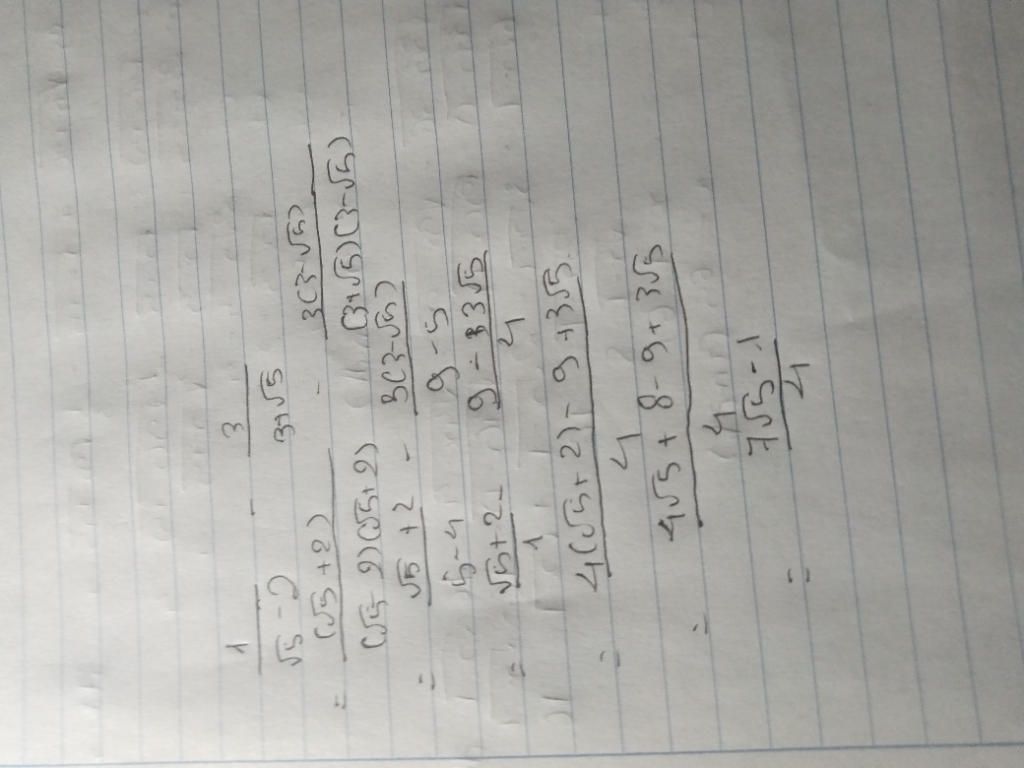 1/(√5 - 2) - 3/(3+√5)
= (√5 + 2)/((√5 - 2)(√5 + 2)) - 3(3-√5)/((3+√5)(3-√5))
= (√5 + 2)/(√5 - 4) - 3(3-√5)/(9 - 5)
= (√5 + 2)/1 - (9 - 3√5)/4
= (4(√5 + 2) - 9 + 3√5)/4
= (4√5 + 8 - 9 + 3√5)/4
= (7√5 - 1)/4